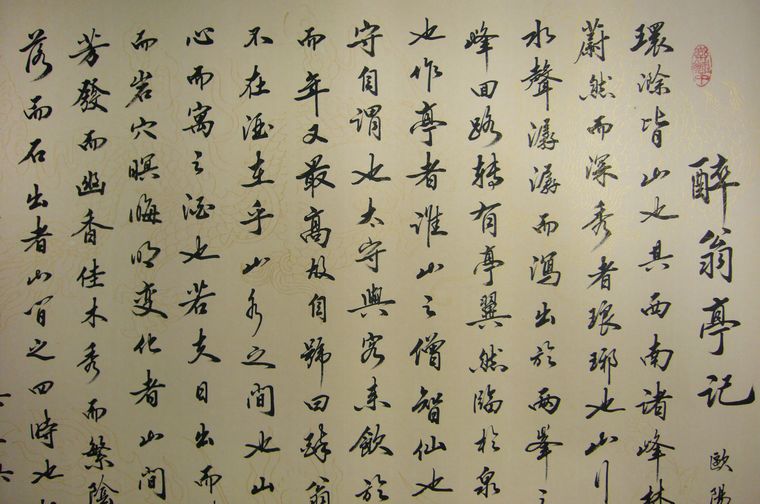 醉翁亭记
歐陽
環滁皆山也其西南諸峰林
蔚然而深秀者琅琊也山行
水聲潺潺而瀉出於兩峯之
峰回路轉有亭翼然臨於泉
也作亭者誰山之僧智仙也
守自謂也太守與客來飲於
而年又最高故自號曰醉翁
不在酒在乎山水之間也山
心而寓之酒也若夫日出而
而岩穴暝晦明变化者山間
芳發而幽香佳木秀而繁陰
落而石出者山间之四時也